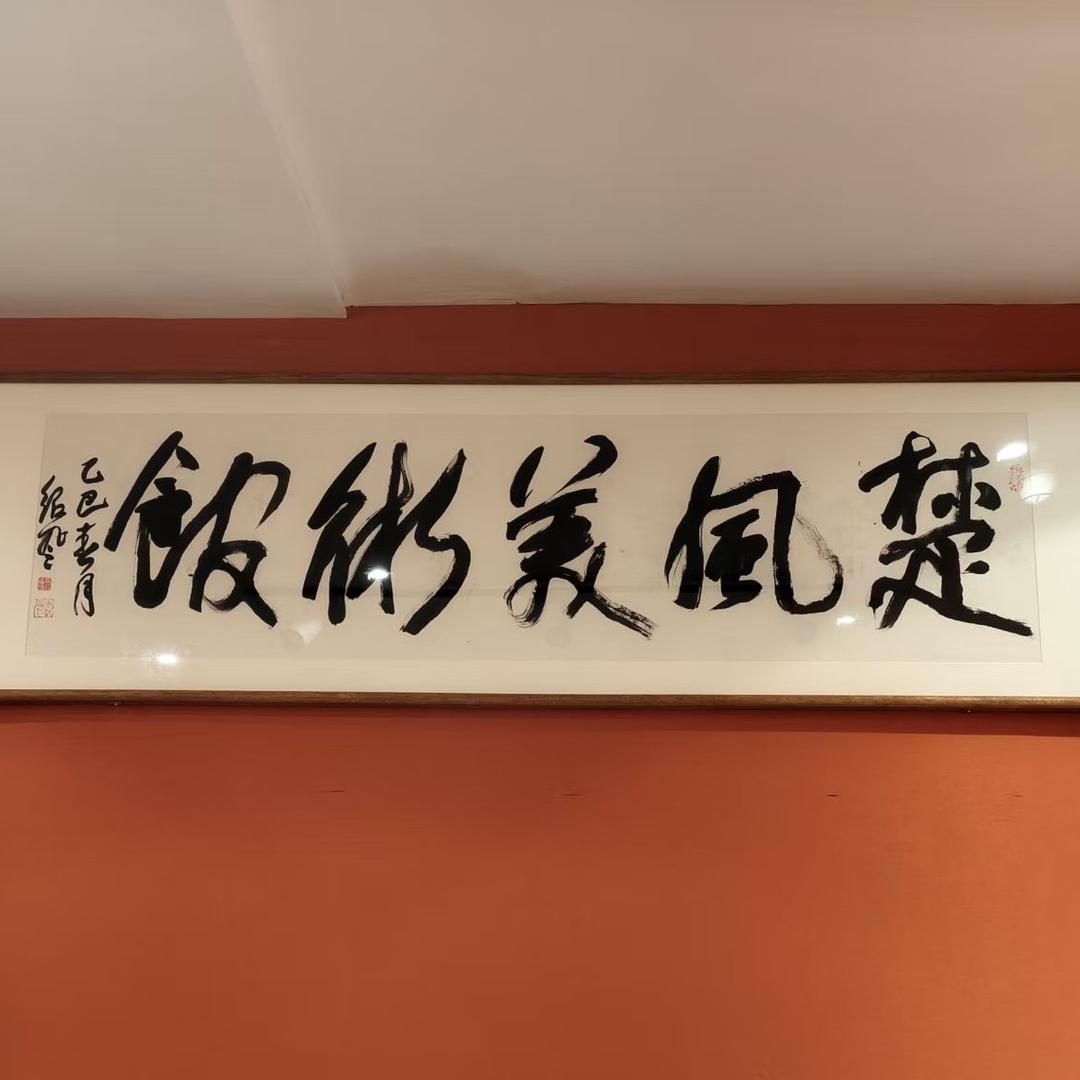 楚風美術館
乙巳春月